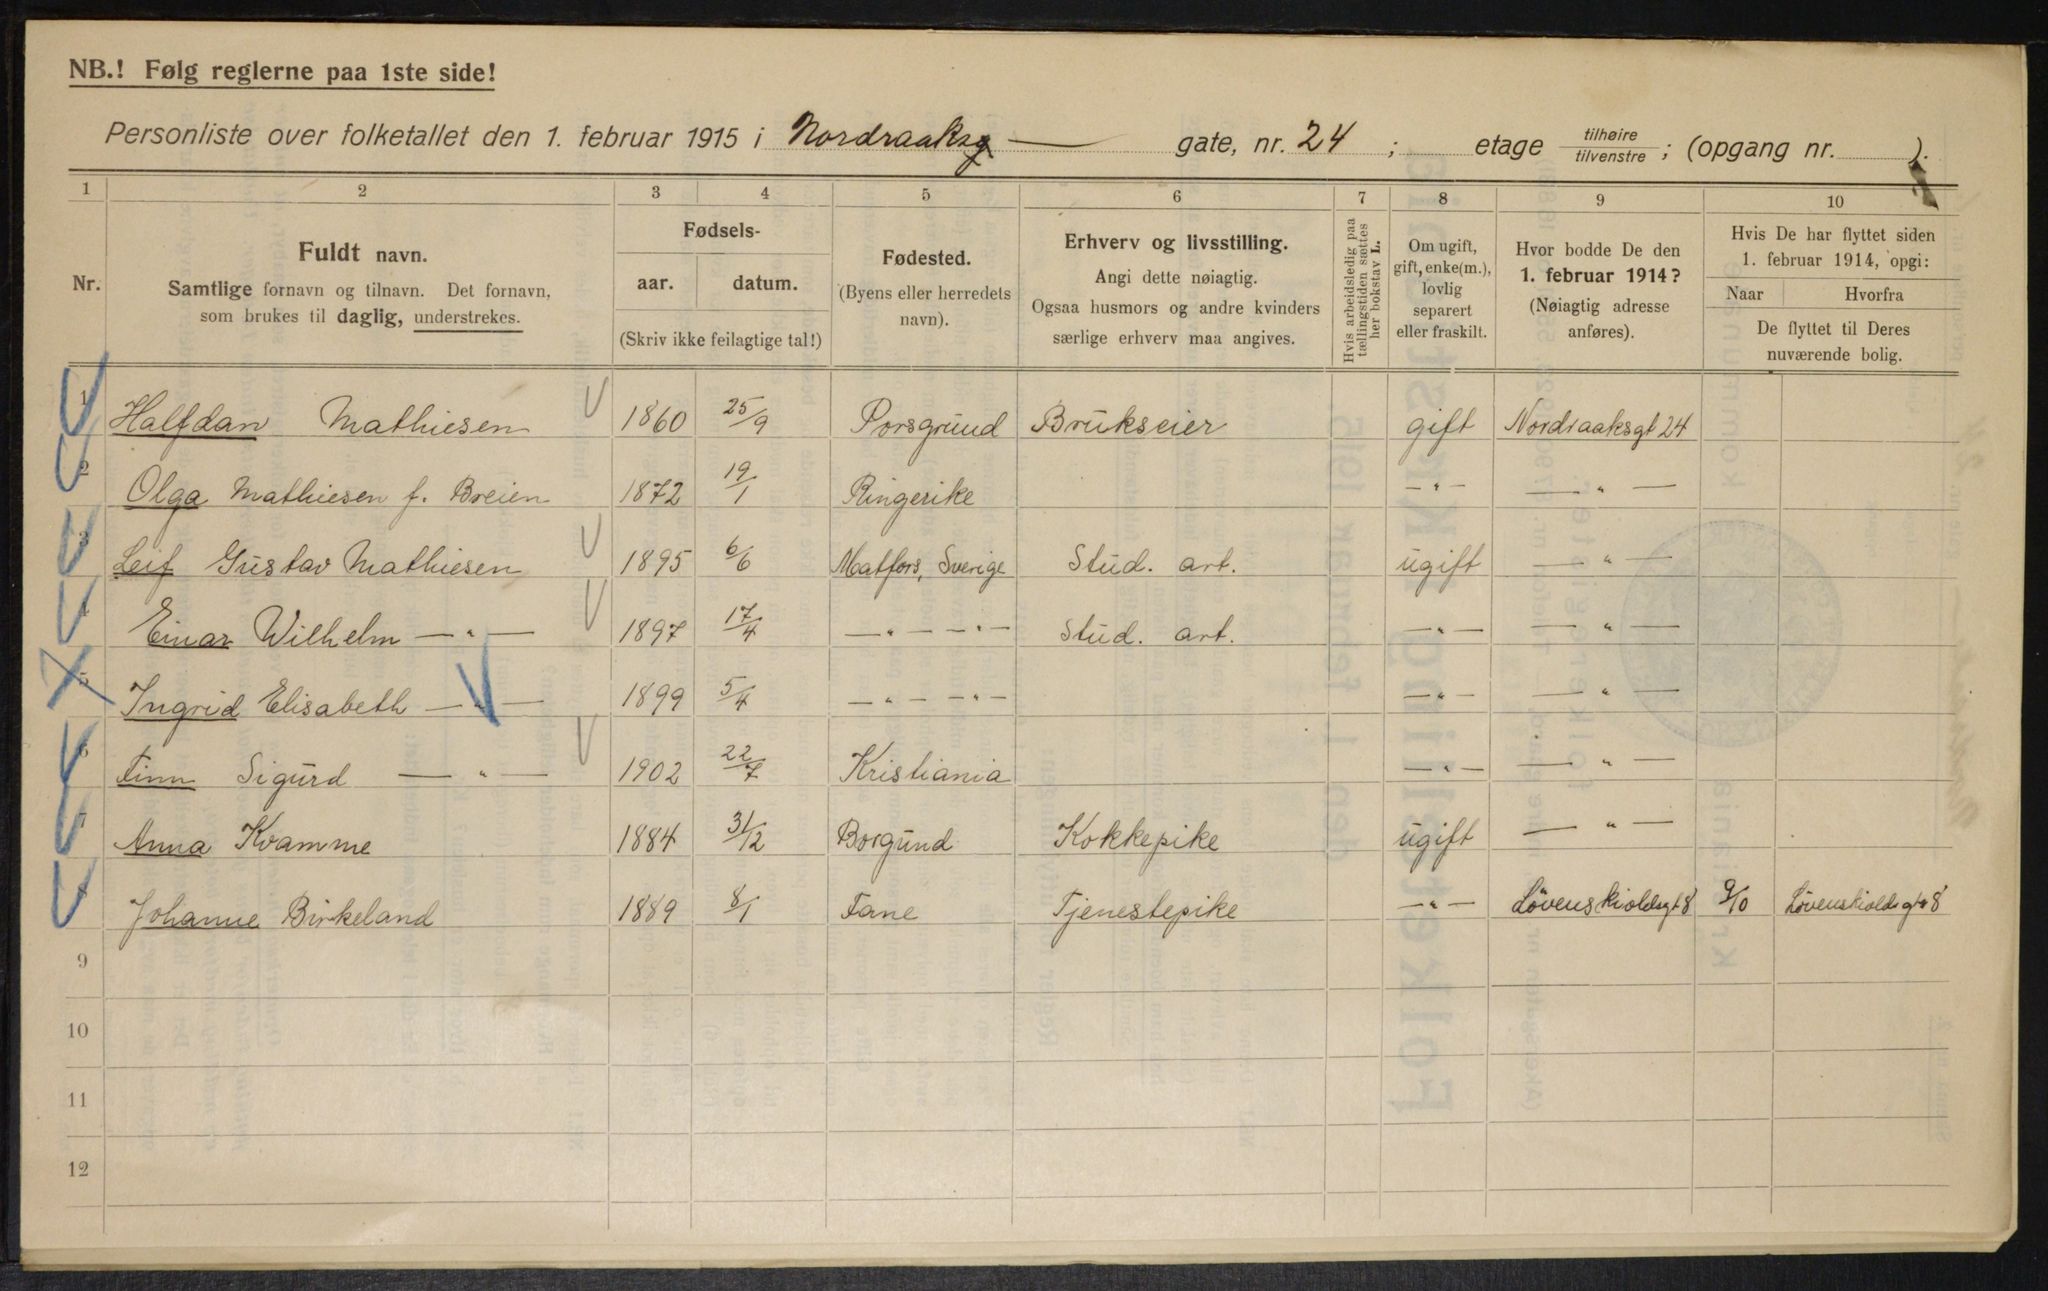 NB.! Følg reglerne paa 1ste side!
Personliste over folketallet den 1. februar 1915 i Nordraaksg — gate, nr. 24 ; etage tilhøire tilvenstre ; (opgang nr. ).
1 2 3 4 5 6 7 8 9 10
Nr.
Fuldt navn.
Samtlige fornavn og tilnavn. Det fornavn,
som brukes til daglig, understrekes.
Fødsels-
aar. datum.
(Skriv ikke feilagtige tal!)
Fødested.
(Byens eller herredets
navn).
Erhverv og livsstilling.
Angi dette nøiagtig.
Ogsaa husmors og andre kvinders
særlige erhverv maa angives.
Hvis arbeidsledig paa
tællingstiden sættes
her bokstav L.
Om ugift,
gift, enke(m.),
lovlig
separert
eller fraskilt.
Hvor bodde De den
1. februar 1914?
(Nøiagtig adresse
anføres).
Hvis De har flyttet siden
1. februar 1914, opgi:
Naar Hvorfra
De flyttet til Deres
nuværende bolig.
1 Halfdan Mathiesen 1860 25/9 Porsgrund Brukseier gift Nordraaksgt 24
2 Olga Mathiesen f. Breien 1872 19/1 Ringerike — " — — " —
3 Leif Gustav Mathiesen 1895 6/6 Matfors, Sverige Stud. art. ugift — " —
4 Einar Wilhelm — " — 1897 17/4 — " — — " — Stud. art. — " — — " —
5 Ingrid Elisabeth — " — 1899 5/4 — " — — " — — " — — " —
6 Finn Sigurd — " — 1902 22/7 Kristiania — " — — " —
7 Anna Kvamme 1884 31/12 Borgund Kokkepike ugift — " —
8 Johanne Birkeland 1889 8/1 Fane Tjenestepike — " — Løvenskioldsgt 8 9/10 Løvenskioldsgt 8
9
10
11
12